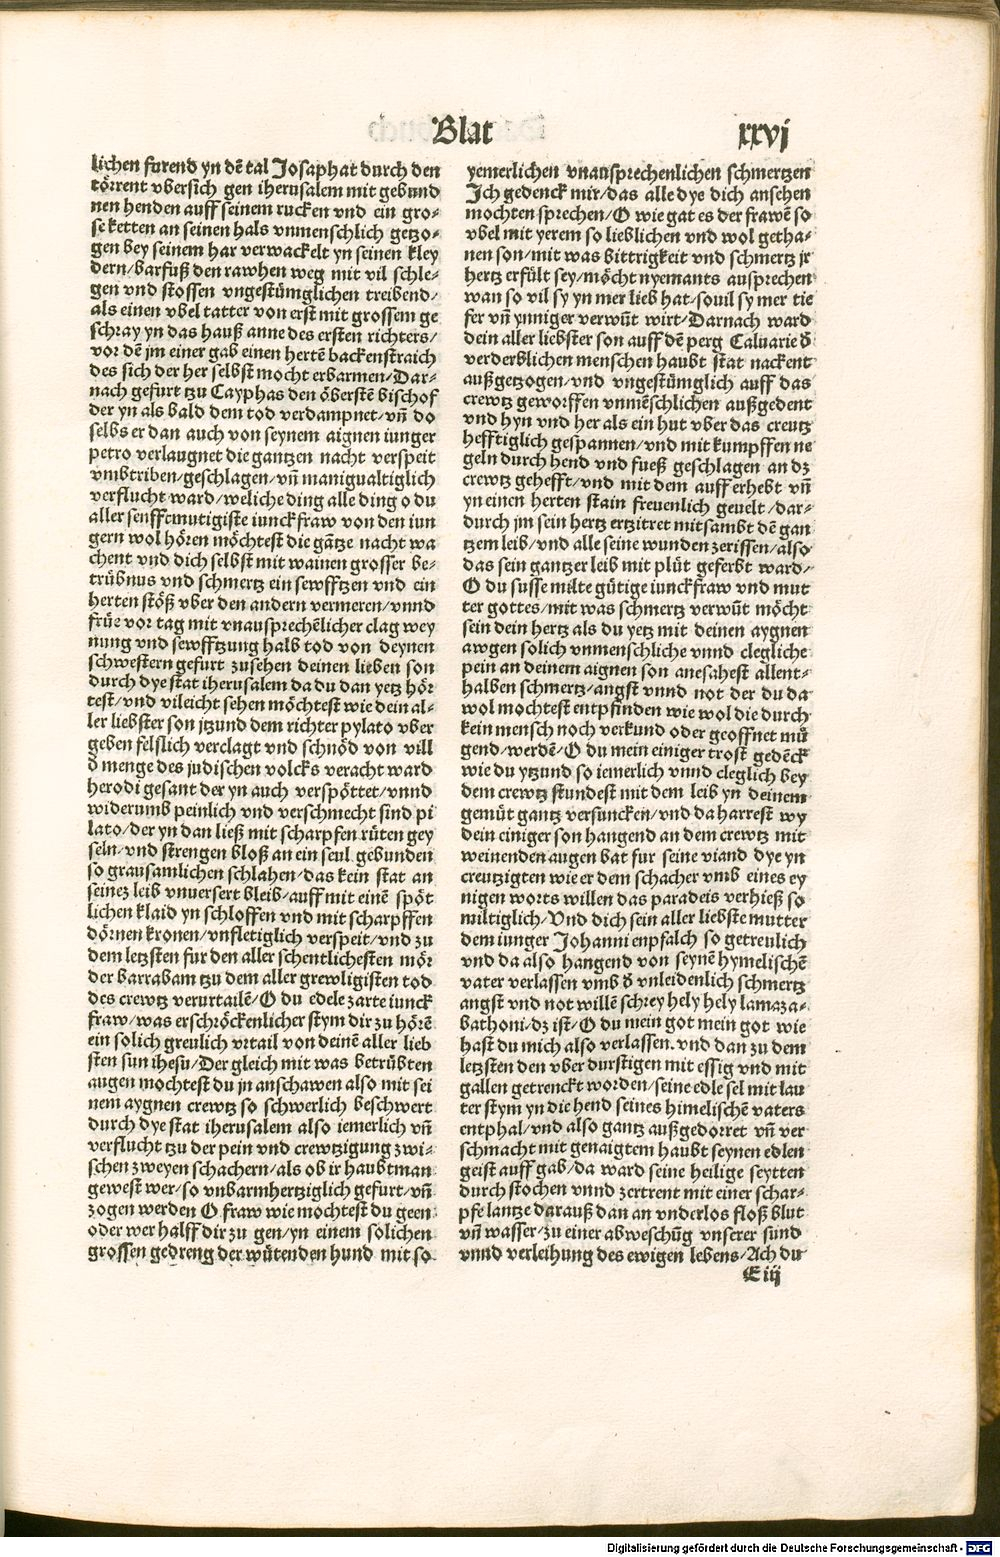 Blat xxvj
lichen furend yn dē tal Josaphat durch den
törrent vbersich gen iherusalem mit gebund
nen henden auff seinem rucken vnd ein gro⸗
se ketten an seinen hals vnmenschlich getzo⸗
gen bey seinem har verwackelt yn seinen kley
dern/barfuß den rawhen weg mit vil schle⸗
gen vnd stossen vngestümglichen treibend/
als einen vbel tatter von erst mit grossem ge
schray yn das hauß anne des ersten richters/
vor dē jm einer gab einen hertē backenstraich
des sich der her selbst mocht erbarmen/Dar⸗
nach gefurt tzu Cayphas den öberstē bischof
der yn als bald dem tod verdampnet/vn̄ do
selbs er dan auch von seynem aignen iunger
petro verlaugnet die gantzen nacht verspeit
vmbtriben/geschlagen/vn̄ manigualtiglich
verflucht ward/weliche ding alle ding o du
aller senfftmutigiste iunckfraw von den iun
gern wol hören möchtest die gātze nacht wa
chent vnd dich selbst mit wainen grosser be⸗
trübnus vnd schmertz ein sewfftzen vnd ein
herten stöß vber den andern vermeren/vnnd
früe vor tag mit vnausprechēlicher clag wey
nung vnd sewfftzung halb tod von deynen
schwestern gefurt zusehen deinen lieben son
durch dye stat iherusalem da du dan yetz hör
test/vnd vileicht sehen möchtest wie dein al⸗
ler liebster son jtzund dem richter pylato vber
geben felslich verclagt vnd schnöd von vill
d̄ menge des judischen volcks veracht ward
herodi gesant der yn auch verspöttet/vnnd
widerumb peinlich vnd verschmecht sind pi
lato/der yn dan ließ mit scharpfen rüten gey
seln/vnd strengen bloß an ein seul gebunden
so grausamlichen schlahen/das kein stat an
seinez leib vnuersert bleib/auff mit einē spöt
lichen klaid yn schloffen vnd mit scharpffen
dörnen kronen/vnfletiglich verspeit/vnd zu
dem letzsten fur den aller schentlichesten mör
der barrabam tzu dem aller grewligisten tod
des crewtz verurtailē/O du edele zarte iunck
fraw/was erschröckenlicher stym dir zu hörē
ein solich greulich vrtail von deinē aller lieb
sten sun ihesu/Der gleich mit was betrübten
augen mochtest du jn anschawen also mit sei
nem aygnen crewtz so schwerlich beschwert
durch dye stat iherusalem also iemerlich vn̄
verflucht tzu der pein vnd crewtzigung zwi⸗
schen zweyen schachern/als ob ir haubtman
gewest wer/so vnbarmhertziglich gefurt/vn̄
zogen werden O fraw wie mochtest du geen
oder wer halff dir zu gen/yn einem solichen
grossen gedreng der wütenden hund mit so
yemerlichen vnausprechenlichen schmertzen
Jch gedenck mir/das alle dye dich ansehen
mochten sprechen/O wie gat es der frawē so
vbel mit yerem so lieblichen vnd wol getha⸗
nen son/mit was bittrigkeit vnd schmertz jr
hertz erfült sey/möcht nyemants ausprechen
wan so vil sy yn mer lieb hat/souil sy mer tie
fer vn̄ ynniger verwūt wirt/Darnach ward
dein aller liebster son auff dē perg Caluarie d̄
verderblichen menschen haubt stat nackent
außgetzogen/vnd vngestümglich auff das
crewtz geworffen vnmēschlichen außgedent
vnd hyn vnd her als ein hut vber das creutz
hefftiglich gespannen/vnd mit kumpffen ne
geln durch hend vnd fueß geschlagen an dz
crewtz gehefft/vnd mit dem auff erhebt vn̄
yn einen herten stain freuenlich geuelt/dar⸗
durch jm sein hertz ertzitret mitsambt dē gan
tzem leib/vnd alle seine wunden zerissen/also
das sein gantzer leib mit plüt geferbt ward/
O du susse milte gütige iunckfraw vnd mut
ter gottes/mit was schmertz verwūt möcht
sein dein hertz als du yetz mit deinen aygnen
awgen solich vnmenschliche vnnd clegliche
pein an deinem aignen son anesahest allent⸗
halben schmertz/angst vnnd not der du da
wol mochtest entpfinden wie wol die durch
kein mensch noch verkund oder geoffnet mü
gend/werdē/O du mein einiger trost gedēck
wie du ytzund so iemerlich vnnd cleglich bey
dem crewtz stundest mit dem leib yn deinem
gemüt gantz versuncken/vnd da harrest wy
dein einiger son hangend an dem crewtz mit
weinenden augen bat fur seine viand dye yn
creutzigten wie er dem schacher vmb eines ey
nigen worts willen das paradeis verhieß so
miltiglich/Vnd dich sein aller liebste mutter
dem iunger Johanni enpfalch so getreulich
vnd da also hangend von seynē hymelischē
vater verlassen vmb d̄ vnleidenlich schmertz
angst vnd not willē schrey hely hely lamaza⸗
bathoni/dz ist/O du mein got mein got wie
hast du mich also verlassen. vnd dan zu dem
letzsten den vber durstigen mit essig vnd mit
gallen getrenckt worden/seine edle sel mit lau
ter stym yn die hend seines himelischē vaters
entphal/vnd also gantz außgedorret vn̄ ver
schmacht mit genaigtem haubt seynen edlen
geist auff gab/da ward seine heilige seytten
durch stochen vnnd zertrent mit einer schar⸗
pfe lantze darauß dan an vnderlos floß blut
vn̄ wasser/zu einer abweschūg vnserer sund
vnnd verleihung des ewigen lebens/Ach du
E iij
Digitalisierung gefördert durch die Deutsche Forschungsgemeinschaft - DFG